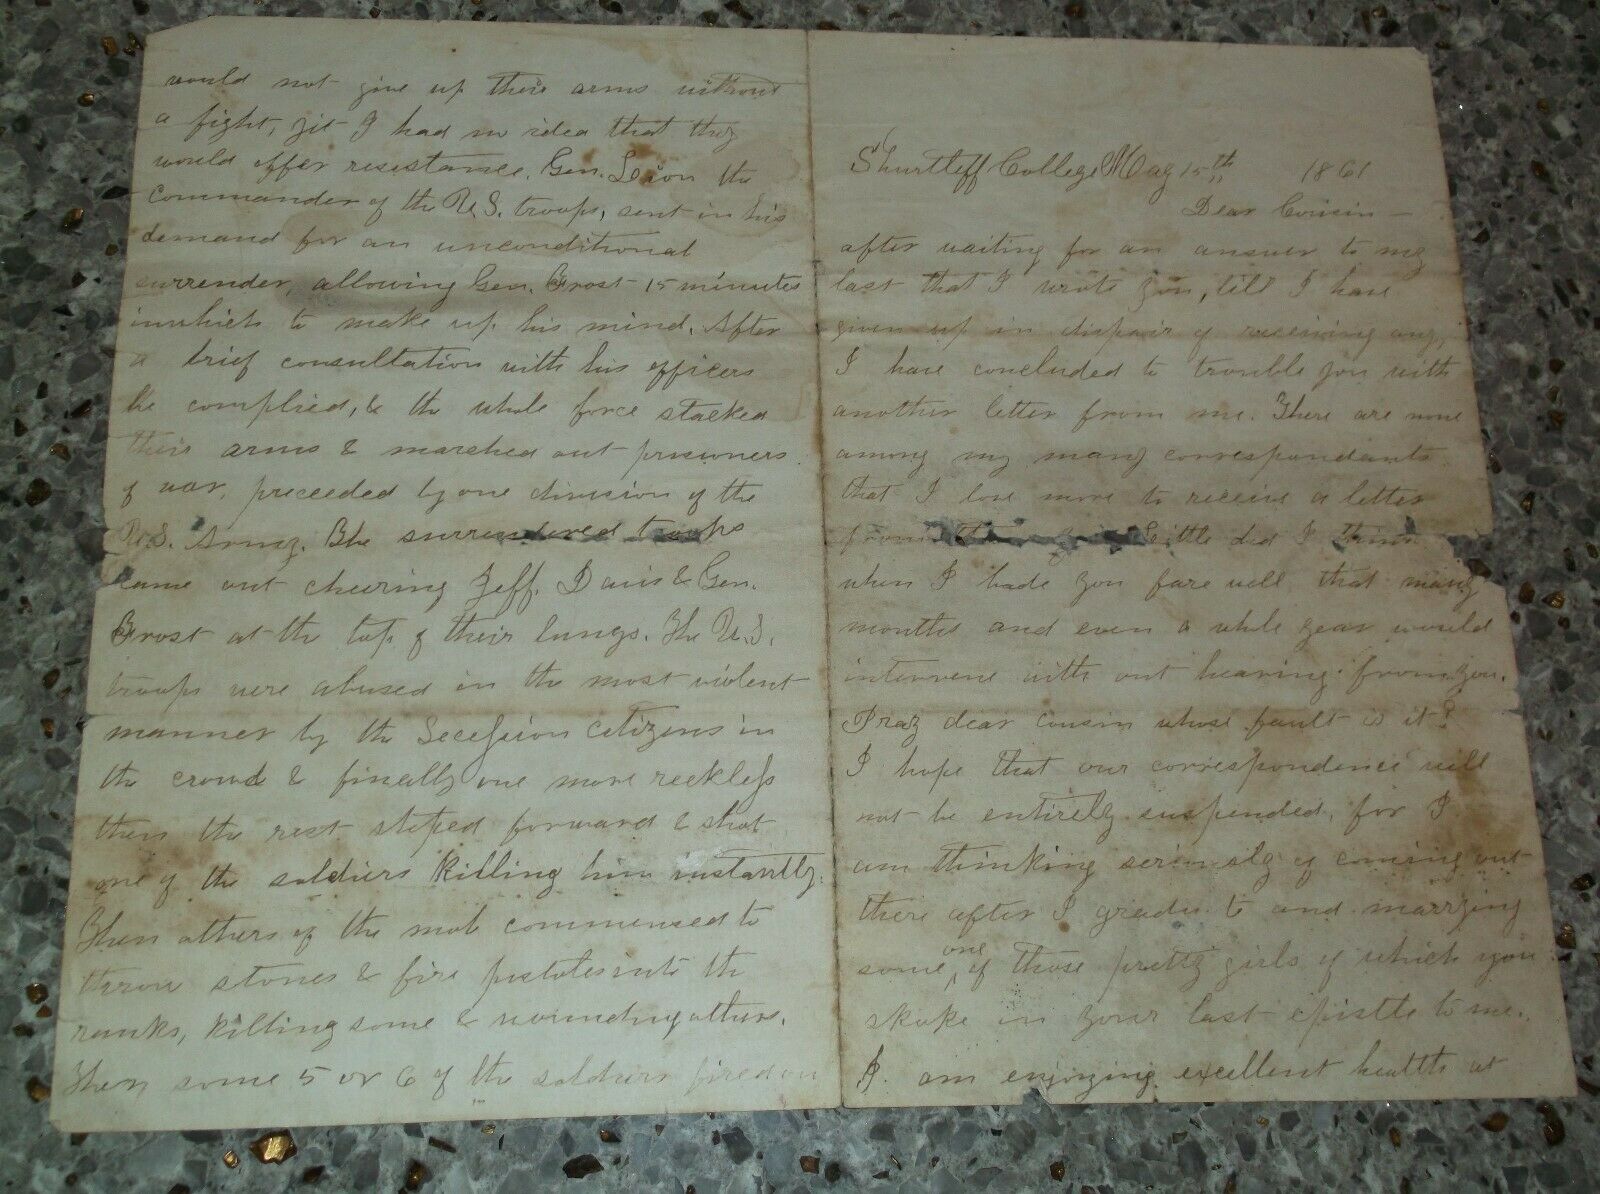 Shurtleff College May 15th 1861
Dear Cousin —
after waiting for an answer to my
last that I wrote you, till I have
given up in dispair of receiving any,
I have concluded to trouble you with
another letter from me. There are none
among my many correspondents
that I love more to receive a letter
from Little did I think
when I bade you fare well that many
months and even a whole year would
intervene with out hearing from you.
Pray dear cousin whose fault is it?
I hope that our correspondence will
not be entirely suspended, for I
am thinking seriously of coming out
there after I gradu te and marrying
some one of those pretty girls of which you
spoke in your last epistle to me.
I am enjoying excellent health at
would not give up their arms without
a fight, yit I had no idea that they
would offer resistance. Gen. Leion the
commander of the U.S. troops, sent in his
demand for an unconditional
surrender, allowing Gen. Frost 15 minutes
inwhich to make up his mind. After
a brief consultation with his officers
he complied, & the whole force stacked
their arms & marched out prisoners
of war, preceeded by one division of the
U.S. Army. The surrendered troops
came out cheering Jeff. Davis & Gen.
Frost at the top of their lungs. The U.S.
troops were abused in the most violent
manner by the Secession citizens in
the crowd & finally one more reckless
then the rest steped forward & shot
one of the soldiers killing him instantly.
Then others of the mob commensed to
throw stones & fire pistols into the
ranks, killing some & wounding others.
Then some 5 or 6 of the soldiers fired on